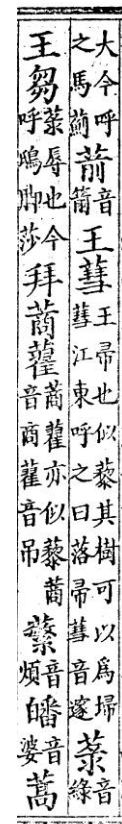 大今呼之馬藺葥音箭王蔧王帚也似藜其樹可以爲埽蔧江東呼之曰落帚蔧音遂菉音綠
王芻菉辱也今呼鴟脚莎拜蔏藋蔏藋亦似藜蔏音商藋音吊蘩音煩皤音婆蒿